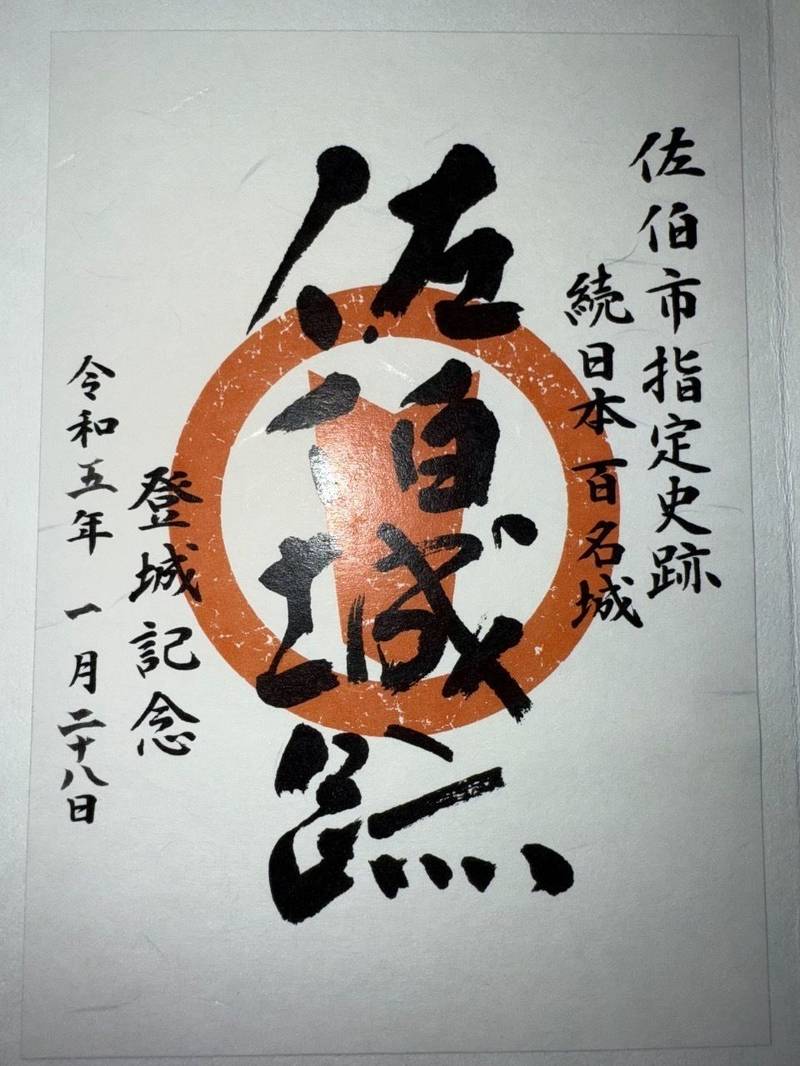 佐伯市指定史跡
続日本百名城
佐伯城跡
登城記念
令和五年 一月二十八日